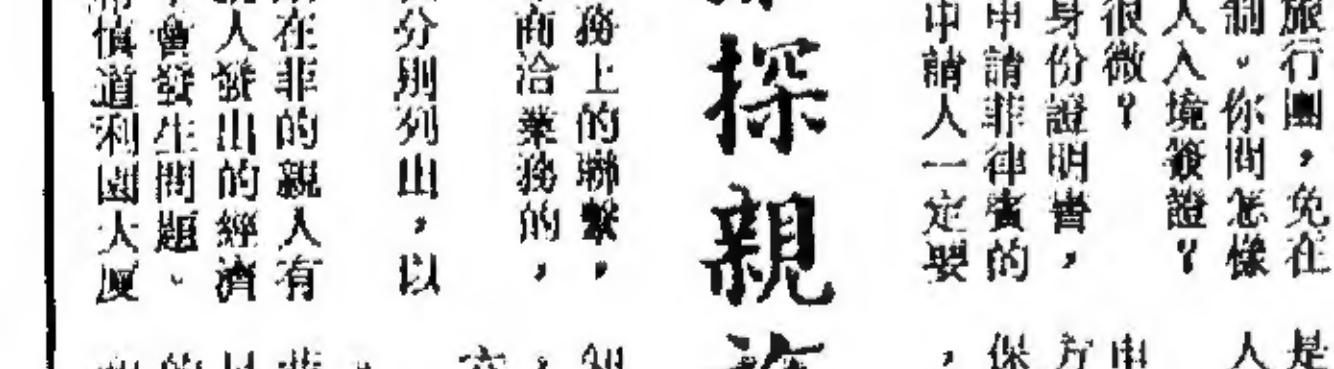 旅行團，免在
制。你問怎樣
人入境簽證？
很微？
身份證明書，
申請菲律賓的
申請人一定要
探親
務上的聯繫，
商洽業務的，
分別列出，以
在菲的親人有
人發出的經濟
會發生問題。
慎道利園大厦
是
人
申
方
保
，